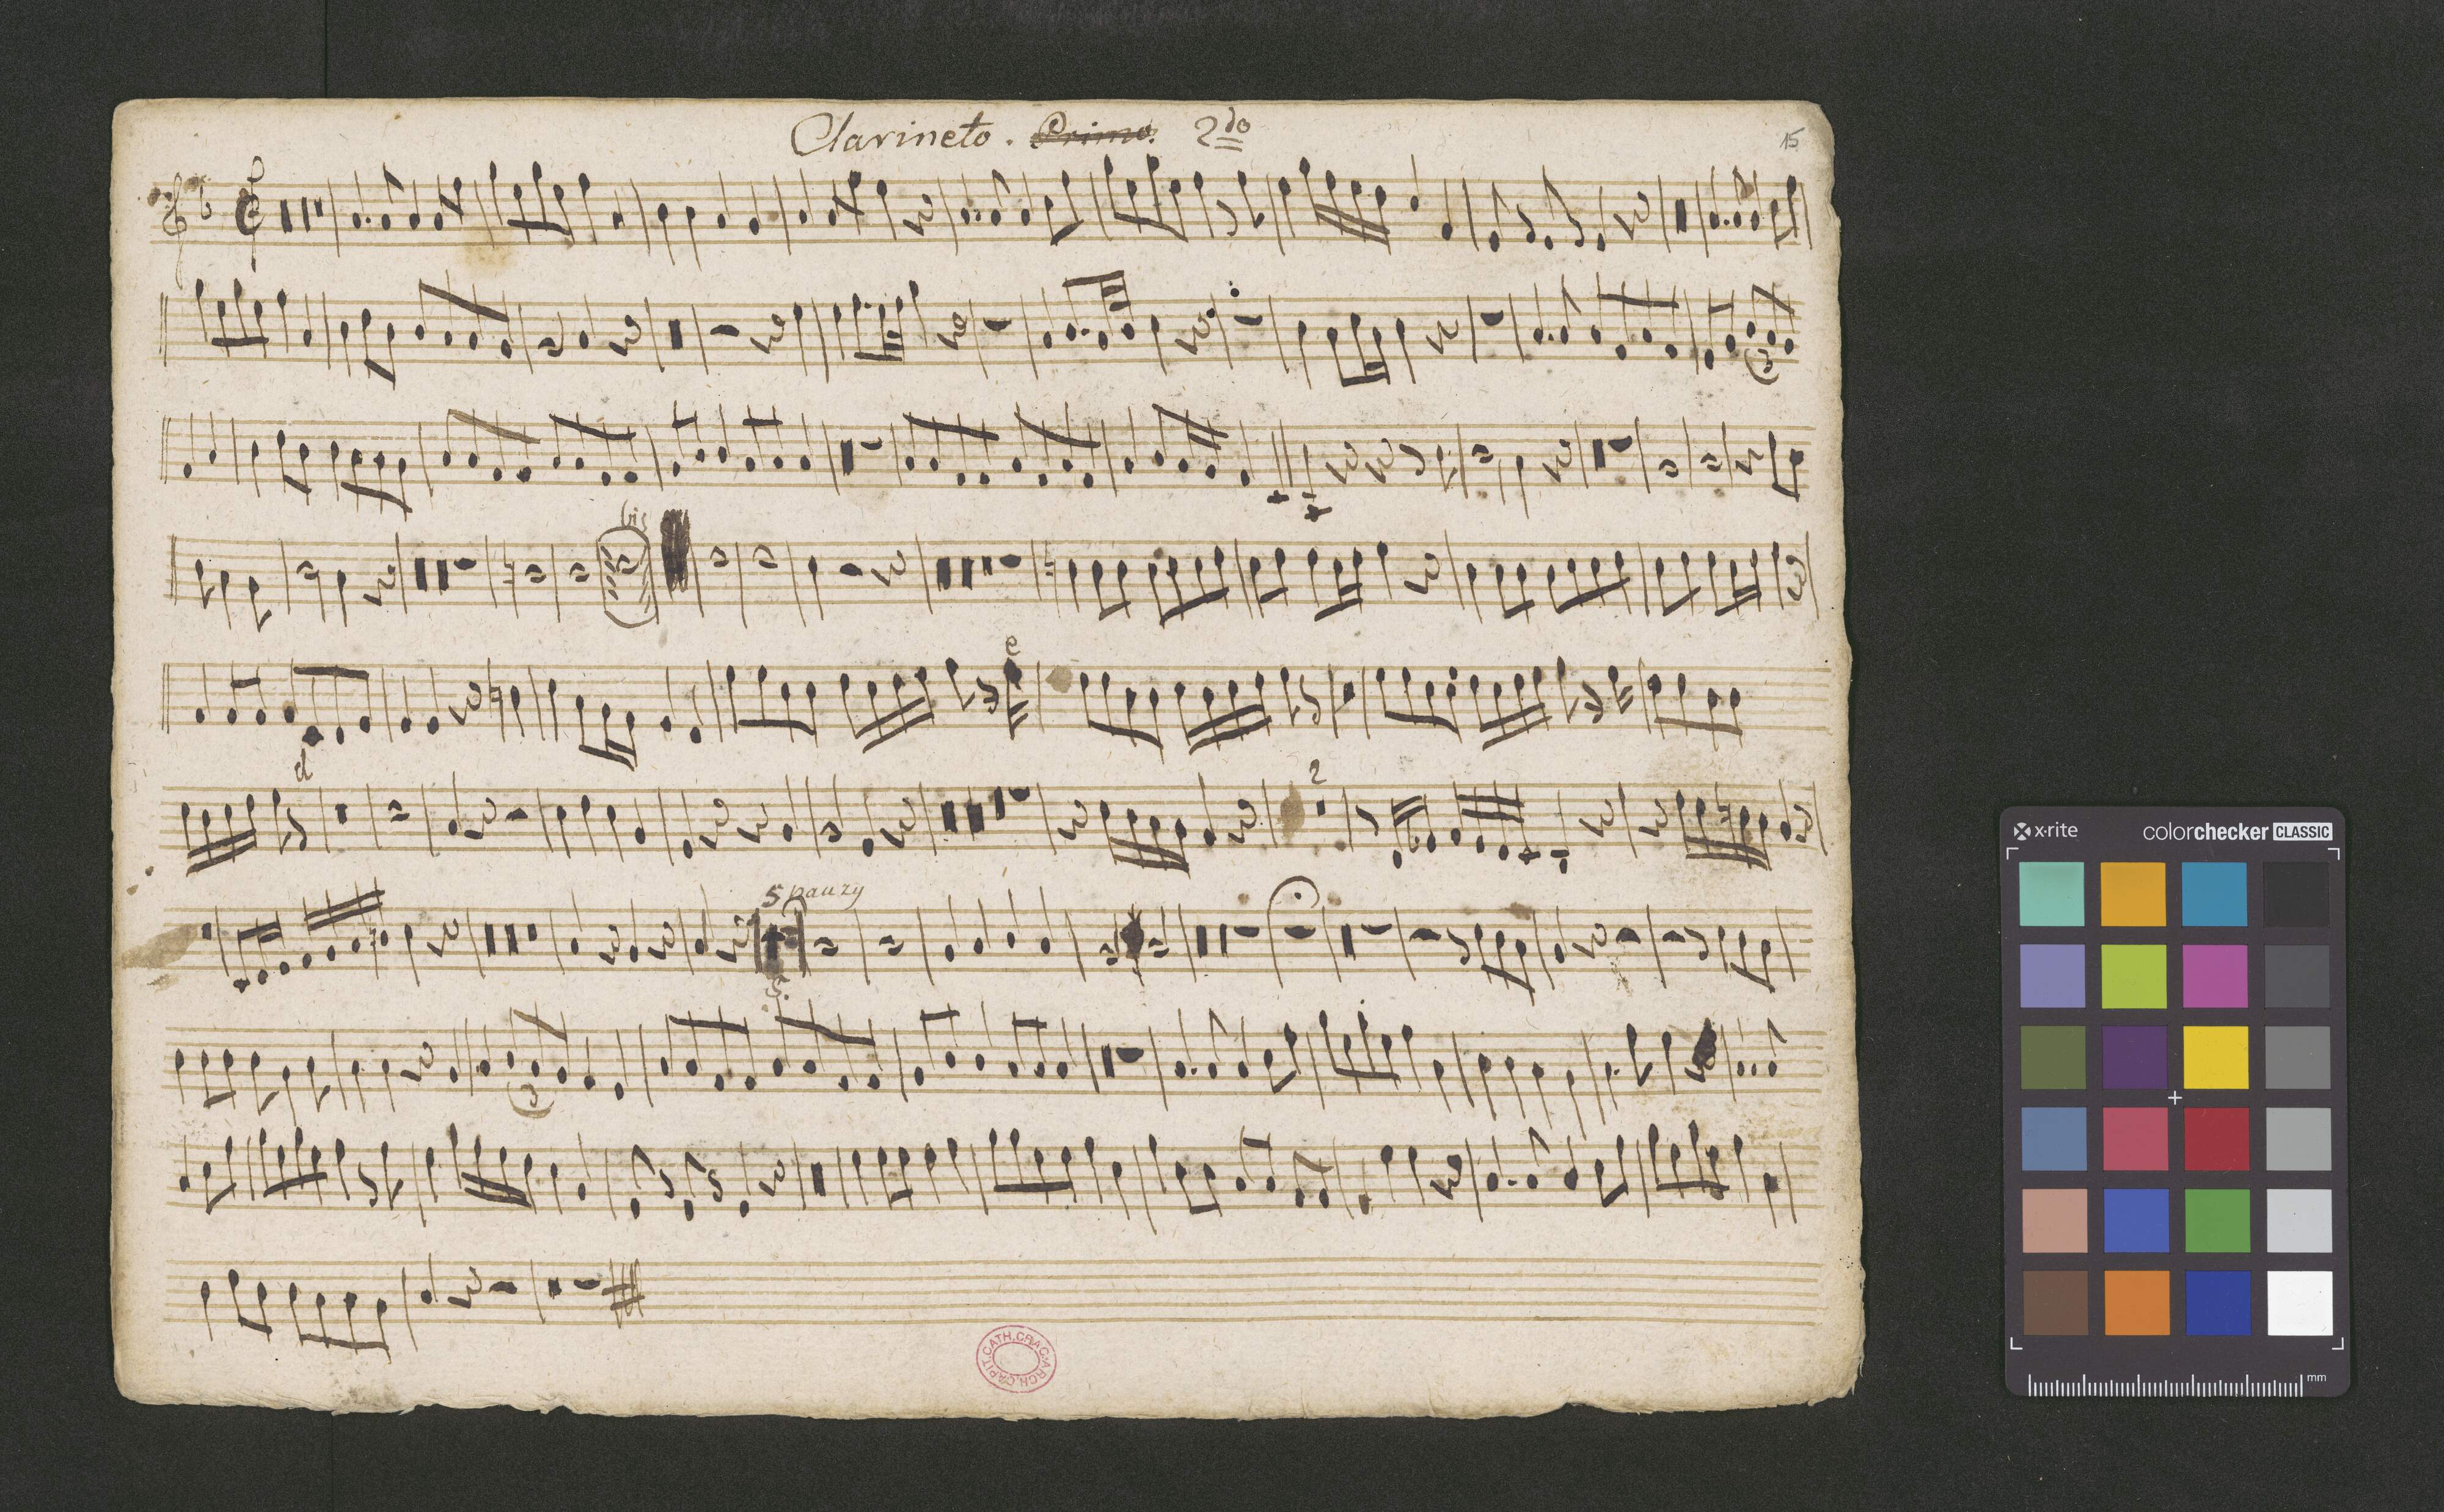 Clarineto. Primo. 2do
15
bis
e
d
2
5 pauzy
5.
CAPIT.CATH.CRAC.ARCH.
x-rite
colorchecker CLASSIC
mm